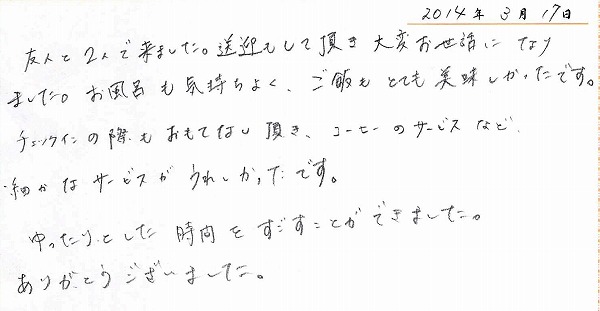 2014年 3月 17日
友人と2人で来ました。送迎もして頂き 大変お世話に なり
ました。お風呂も気持ちよく、ご飯も とても 美味しかったです。
チェックインの際も おもてなし 頂き、コーヒーの サービス など
細かな サービスが うれしかったです。
ゆったりとした 時間を すごすことが できました。
ありがとうございました。